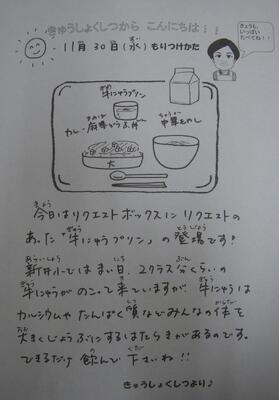 きゅうしょくしつから こんにちは!!
きょうも、
いっぱい
たべてね!!
11月 30日(水) もりつけかた
牛にゅうプリン
カレー麻婆どうふ丼
中華もやし
大
今日はリクエストボックスに リクエストの
あった「牛にゅうプリン」の 登場です!
新井小では まい日、2クラス分くらいの
牛にゅうが のこって来ていますが、牛にゅうは
カルシウムや たんぱく質などでみんなの体を
大きくじょうぶにするはたらきがあるのです。
できるだけ 飲んで 下さいね!!
きゅうしょくしつより♪